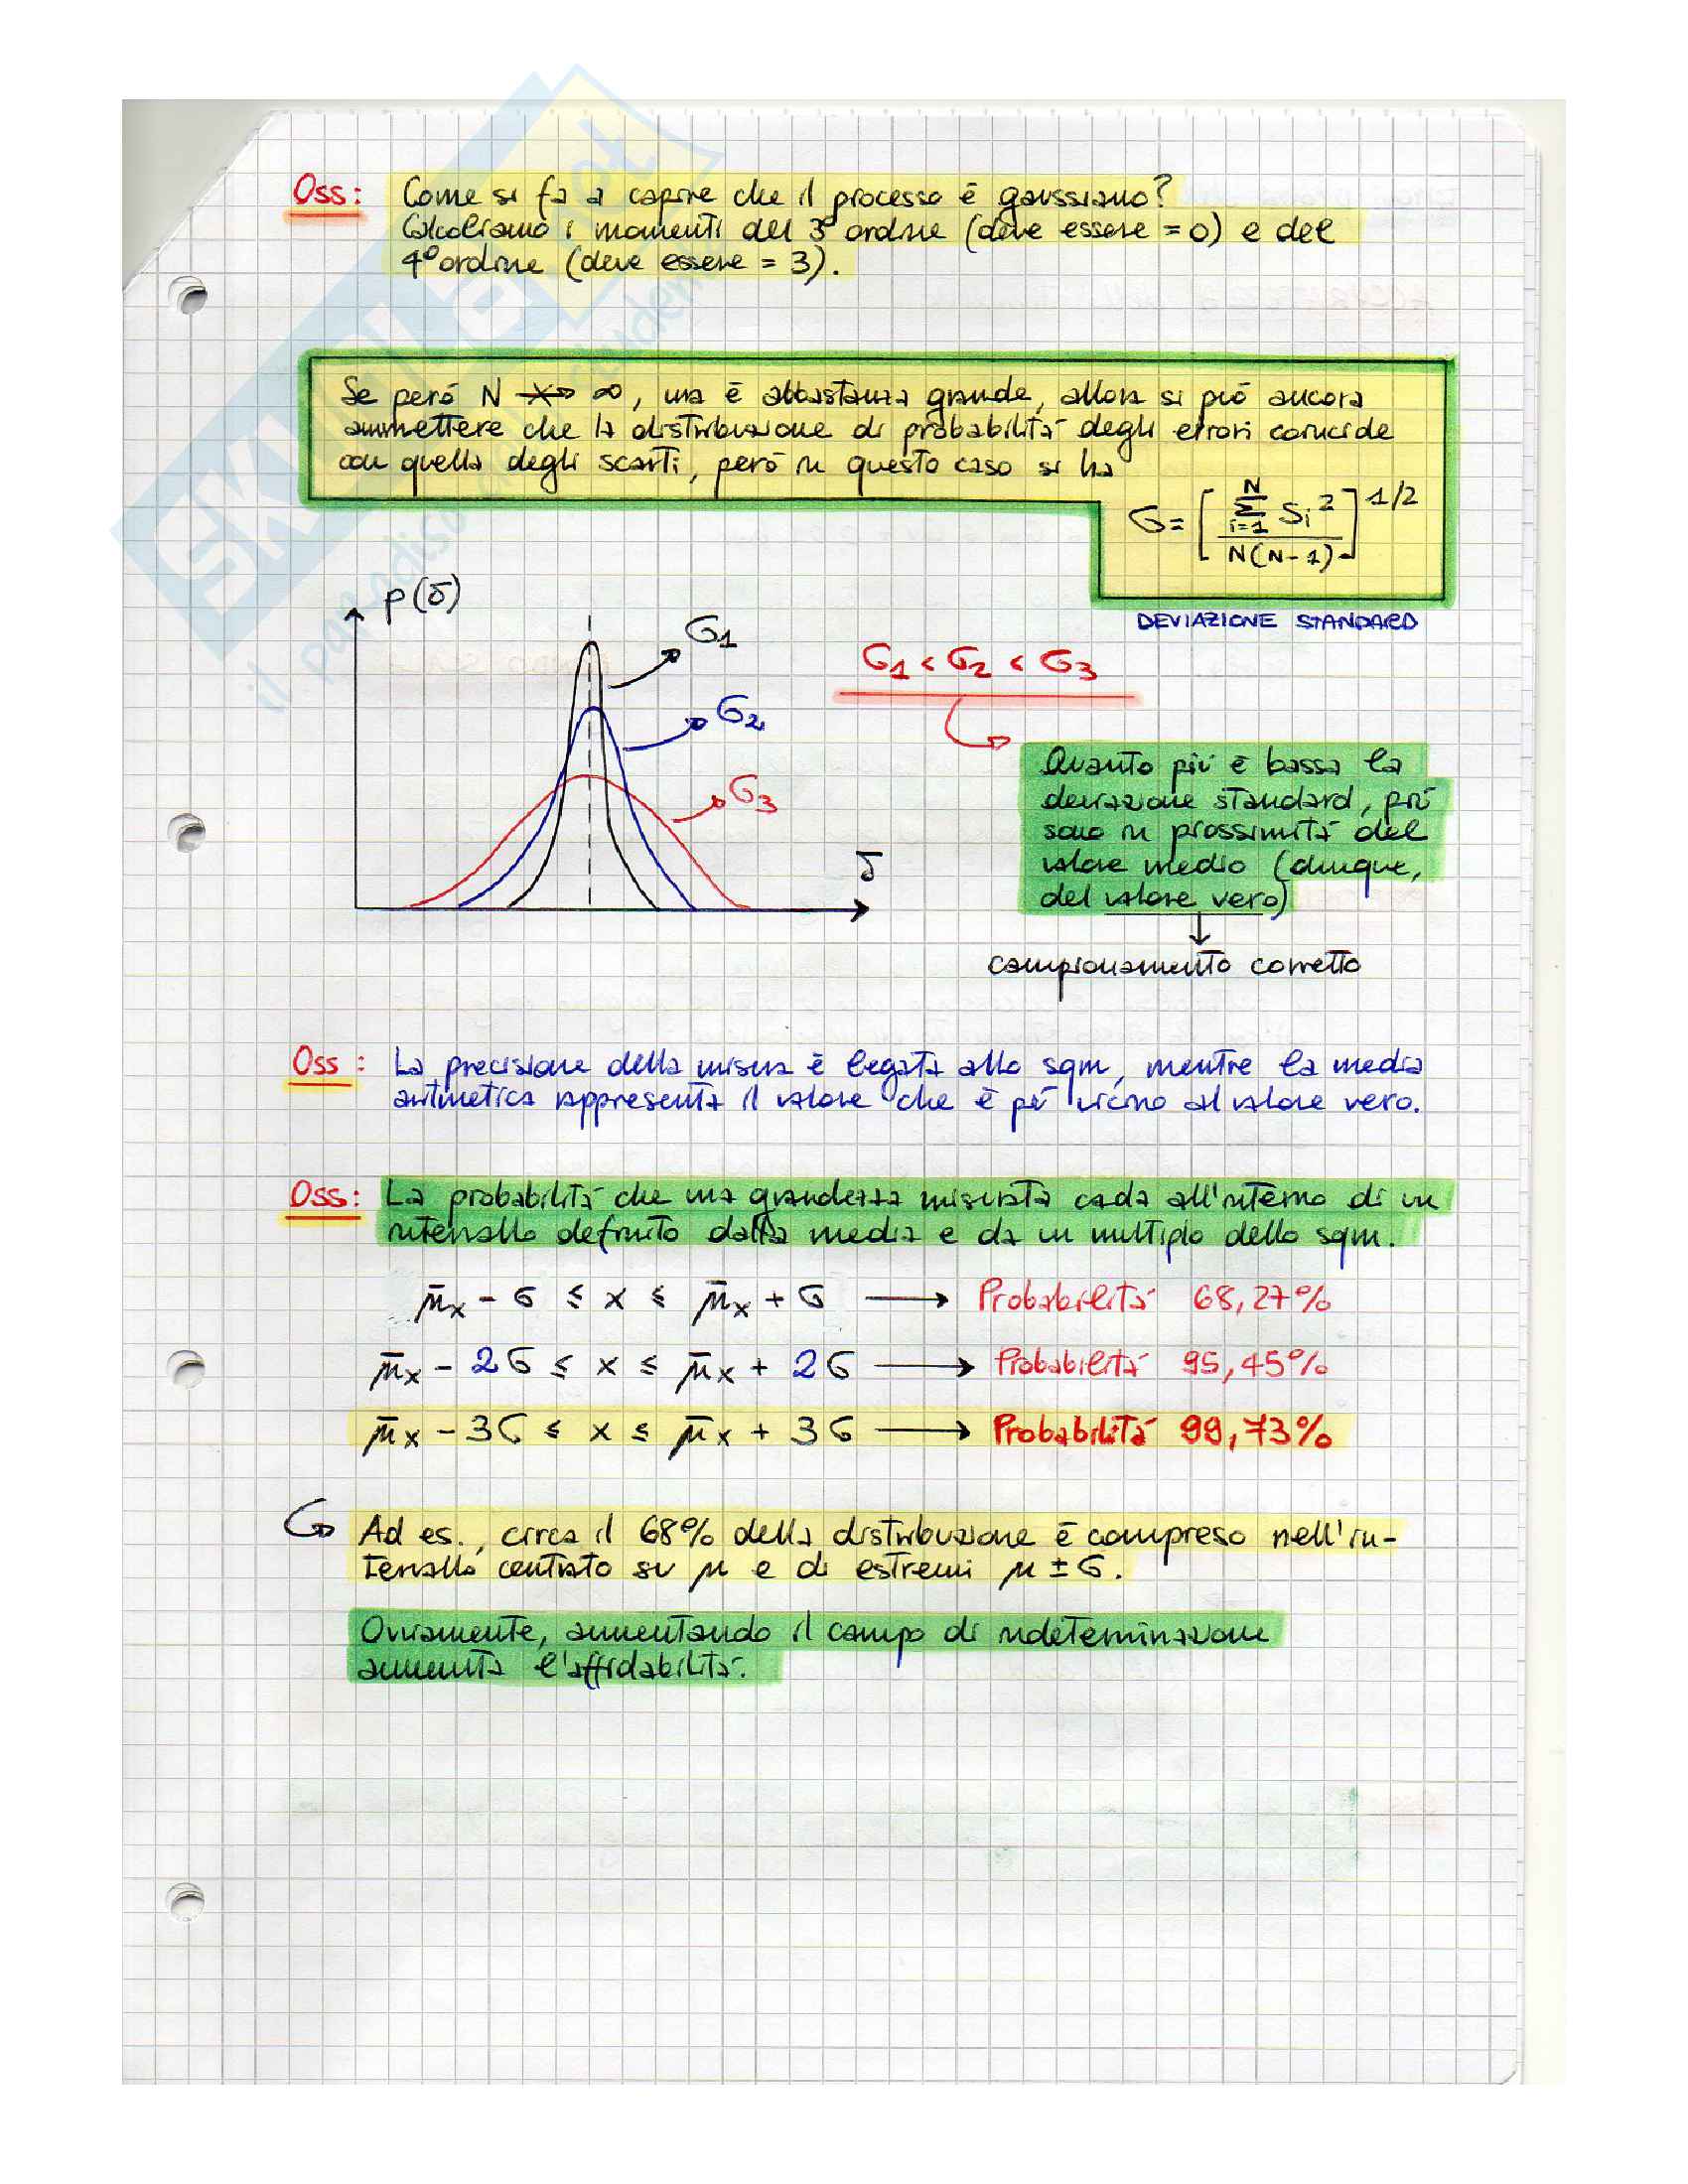 Oss: Come si fa a capire che il processo è gaussiano?
Calcoliamo i momenti del 3° ordine (deve essere = 0) e del
4° ordine (deve essere = 3).
Se però N ↛ ∞, ma è abbastanza grande, allora si può ancora
ammettere che la distribuzione di probabilità degli errori coincide
con quella degli scarti, però in questo caso si ha
σ = [ Σ_{i=1}^{N} Si² / N(N-1) ]^{1/2}
DEVIAZIONE STANDARD
p(δ)
σ1
σ2
σ3
δ
σ1 < σ2 < σ3
Quanto più è bassa la
deviazione standard, più
sono in prossimità del
valore medio (dunque,
del valore vero)
campionamento corretto
Oss: La precisione della misura è legata allo sqm, mentre la media
aritmetica rappresenta il valore che è più vicino al valore vero.
Oss: La probabilità che una grandezza misurata cada all'interno di un
intervallo definito dalla media e da un multiplo dello sqm.
μ̄x - σ ≤ x ≤ μ̄x + σ → Probabilità 68,27%
μ̄x - 2σ ≤ x ≤ μ̄x + 2σ → Probabilità 95,45%
μ̄x - 3σ ≤ x ≤ μ̄x + 3σ → Probabilità 99,73%
Ad es., circa il 68% della distribuzione è compreso nell'in-
tervallo centrato su μ e di estremi μ ± σ.
Ovviamente, aumentando il campo di indeterminazione
aumenta l'affidabilità.